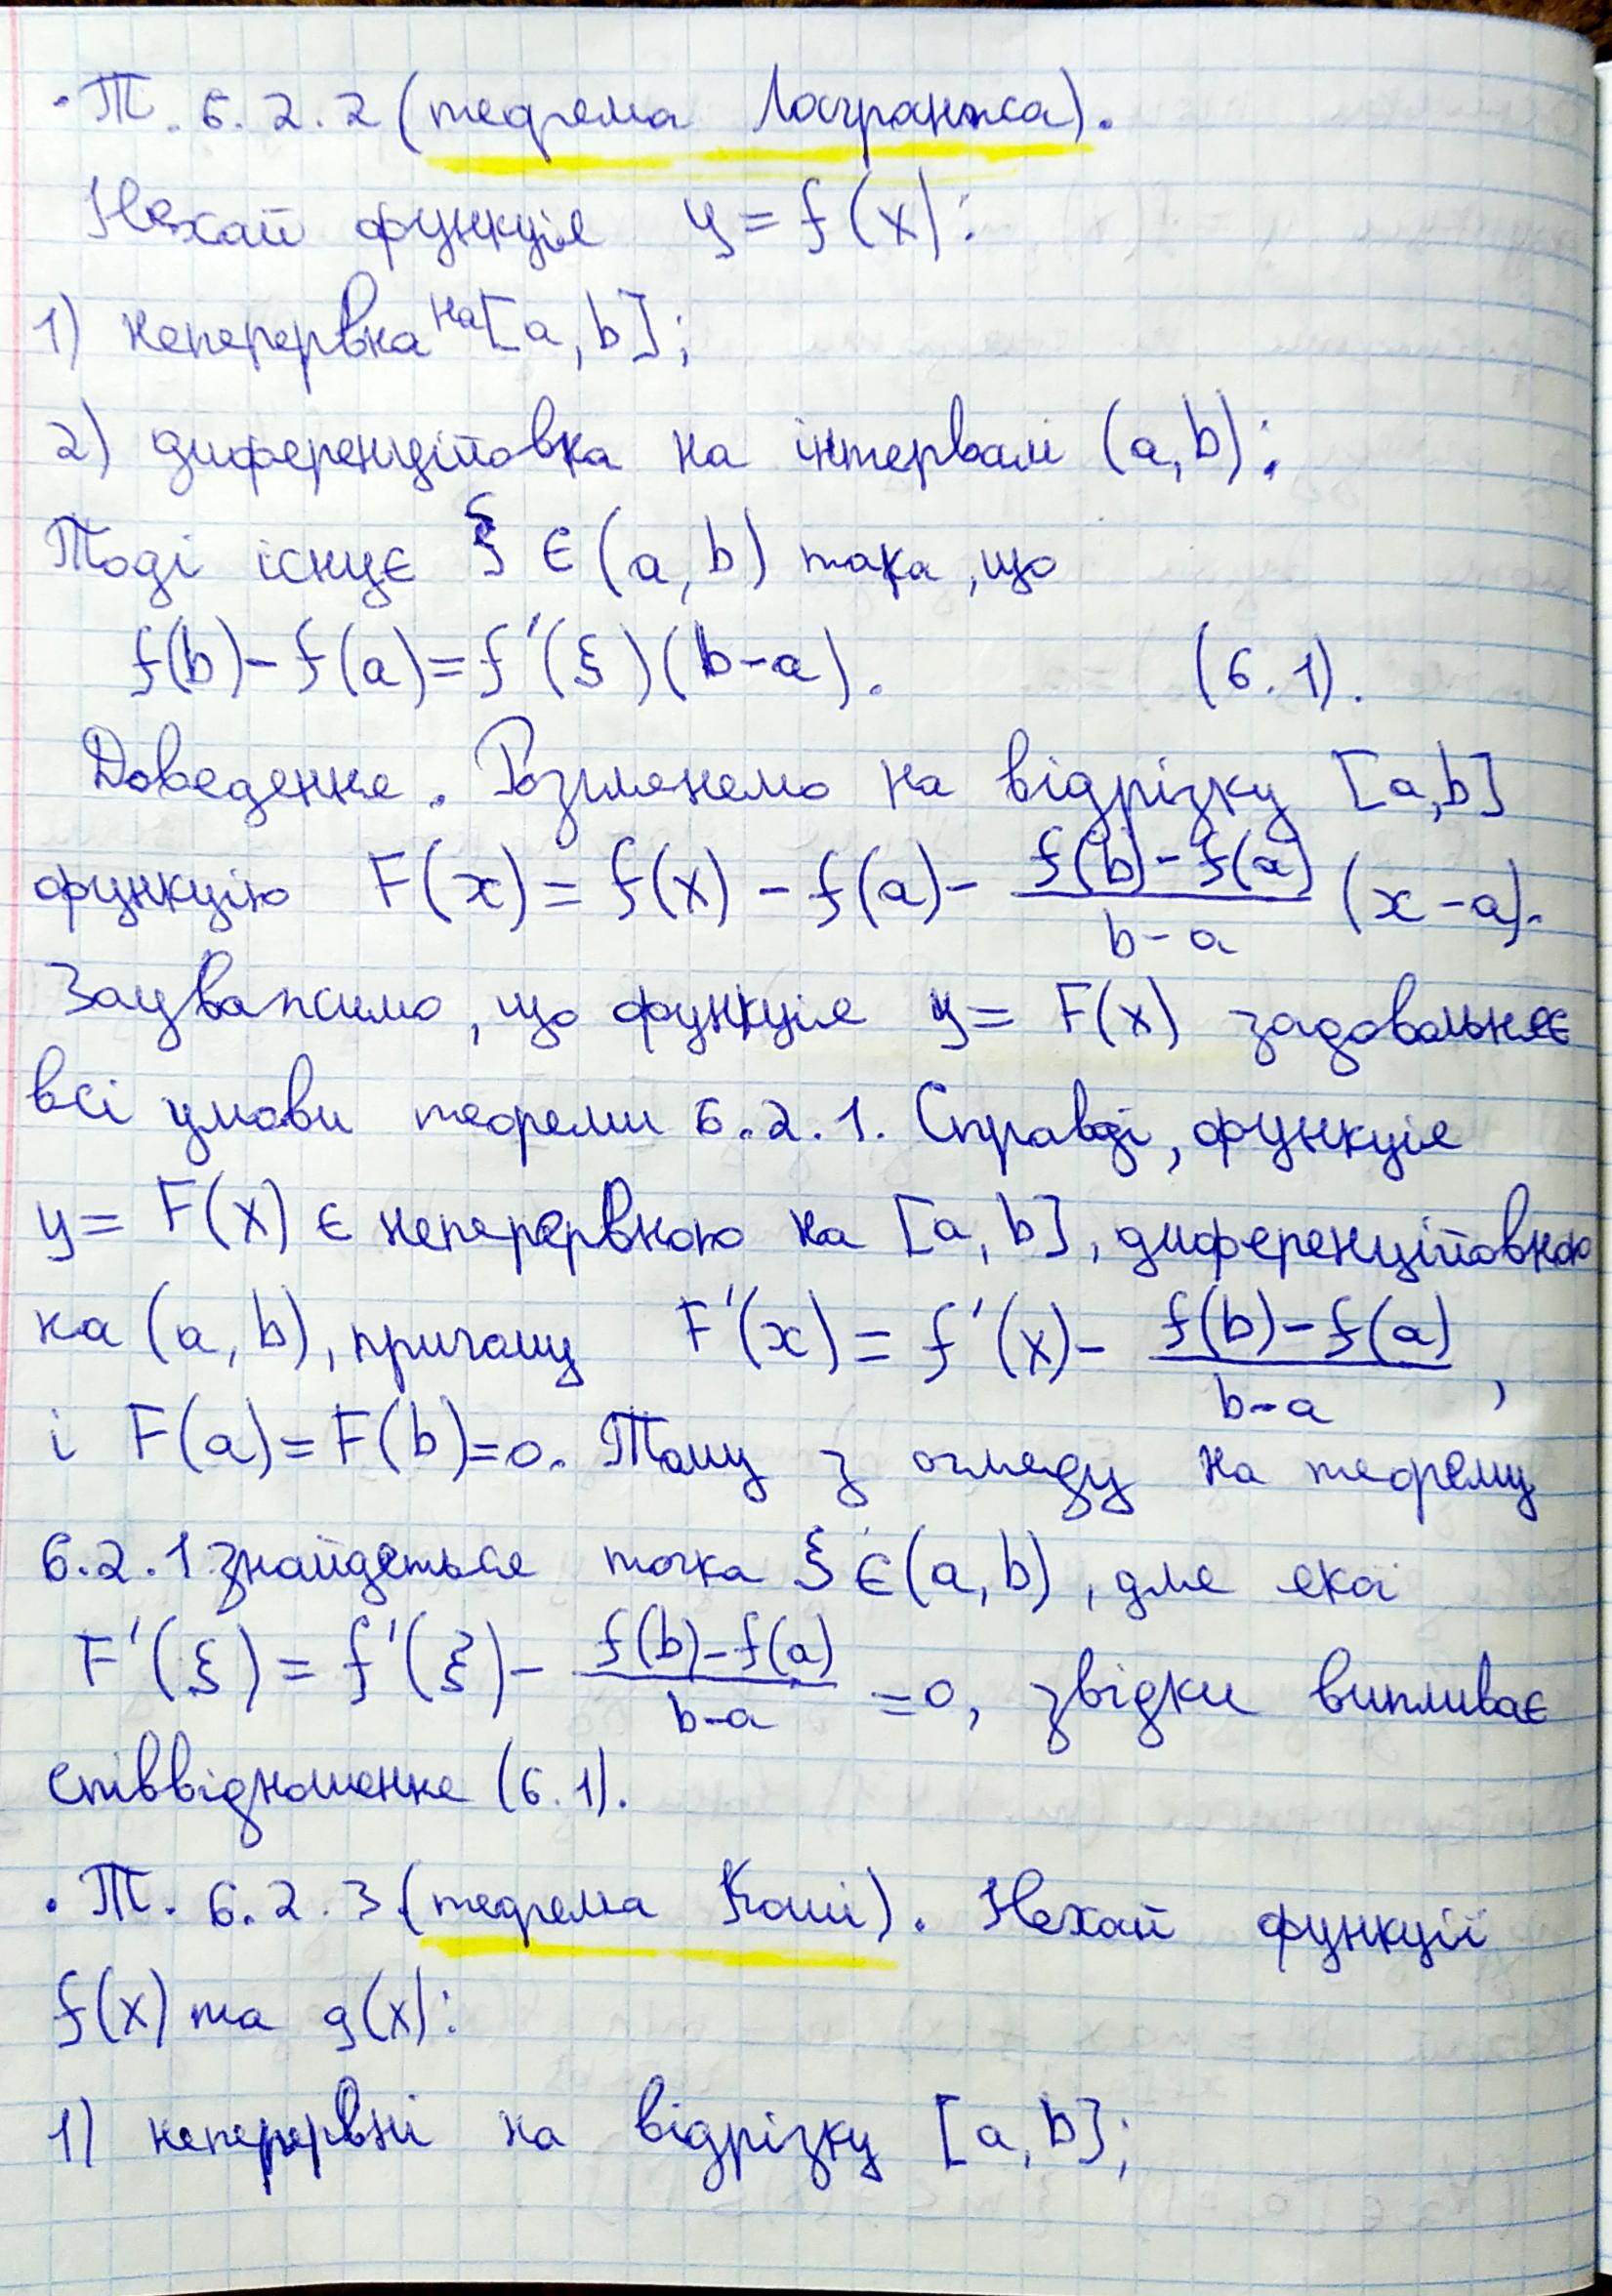 · Т. 6.2.2 (теорема Лагранжа).
Нехай функція y = f(x):
1) неперервна на [a, b];
2) диференційовна на інтервалі (a, b);
Тоді існує ξ ∈ (a, b) така, що
f(b) - f(a) = f'(ξ)(b-a). (6.1).
Доведення. Розглянемо на відрізку [a, b]
функцію F(x) = f(x) - f(a) - \frac{f(b) - f(a)}{b-a} (x-a).
Зауважимо, що функція y = F(x) задовольняє
всі умови теореми 6.2.1. Справді, функція
y = F(x) є неперервною на [a, b], диференційовною
на (a, b), причому F'(x) = f'(x) - \frac{f(b) - f(a)}{b-a},
і F(a) = F(b) = 0. Тому з огляду на теорему
6.2.1 знайдеться точка ξ ∈ (a, b), для якої
F'(ξ) = f'(ξ) - \frac{f(b) - f(a)}{b-a} = 0, звідки випливає
співвідношення (6.1).
· Т. 6.2.3 (теорема Коші). Нехай функції
f(x) та g(x):
1) неперервні на відрізку [a, b];